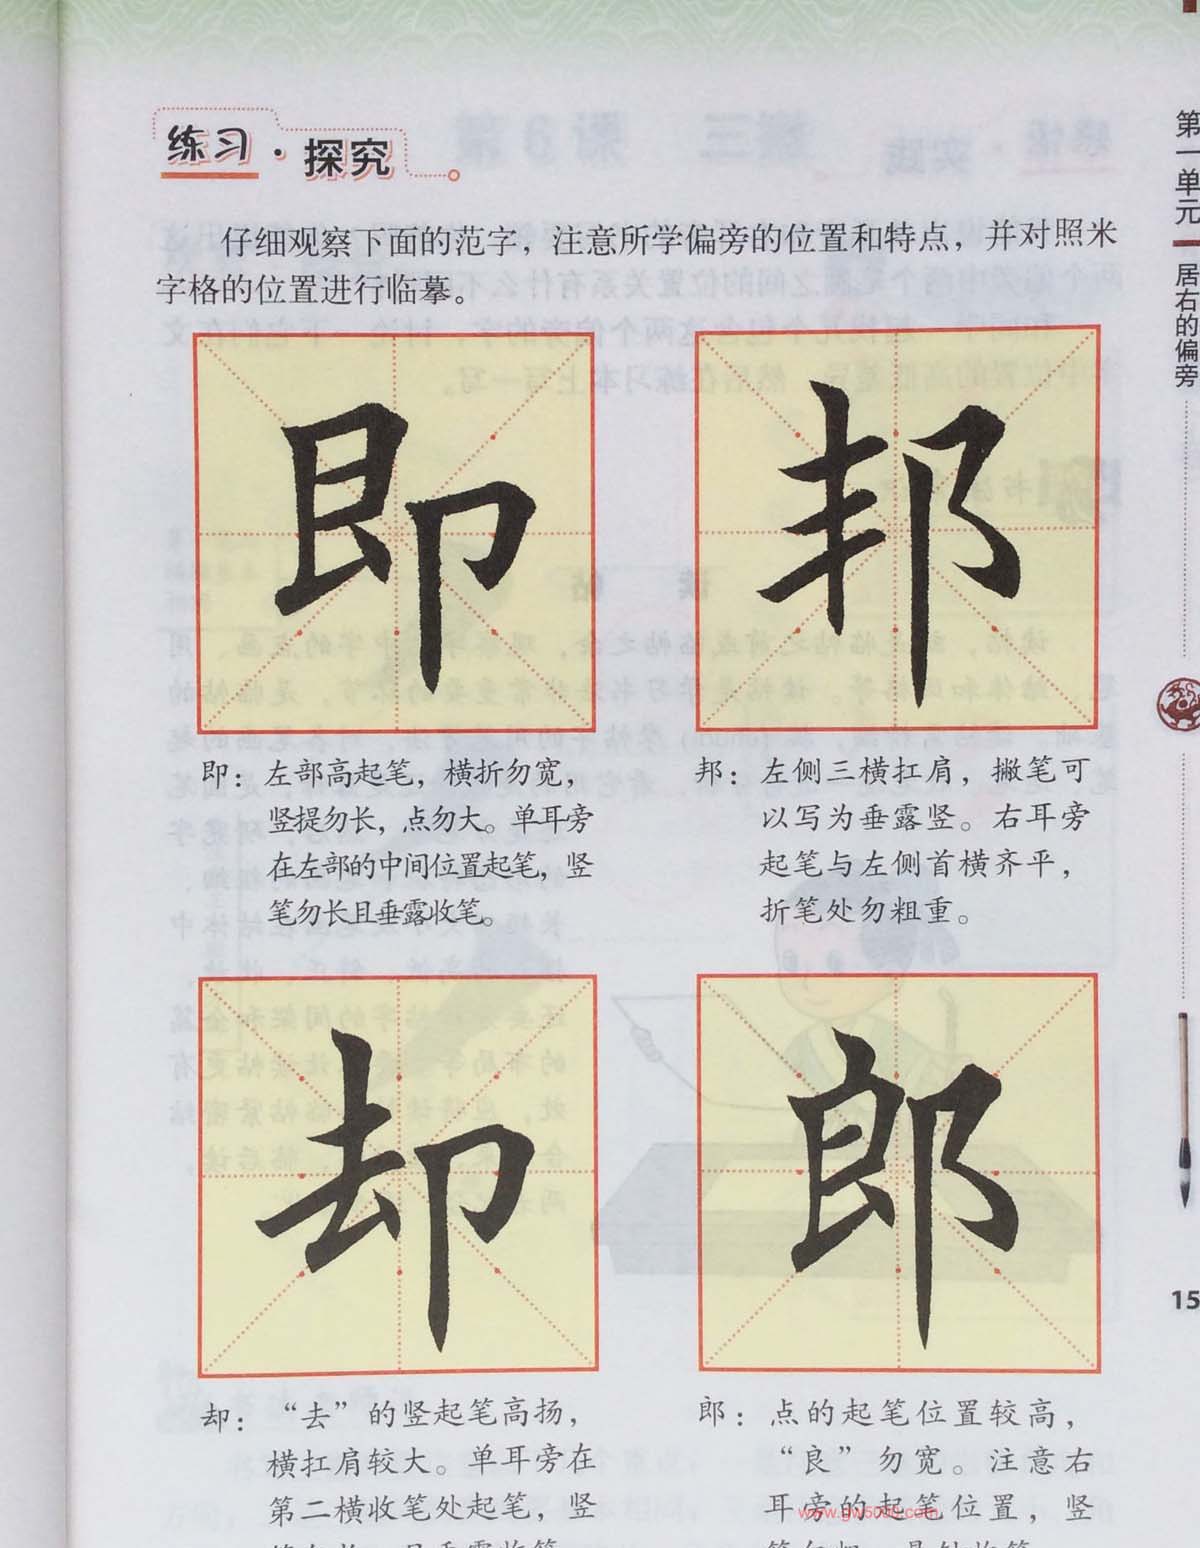 练习·探究
仔细观察下面的范字，注意所学偏旁的位置和特点，并对照米
字格的位置进行临摹。
即
邦
即：左部高起笔，横折勿宽，
竖提勿长，点勿大。单耳旁
在左部的中间位置起笔，竖
笔勿长且垂露收笔。
邦：左侧三横扛肩，撇笔可
以写为垂露竖。右耳旁
起笔与左侧首横齐平，
折笔处勿粗重。
却
郎
却：“去”的竖起笔高扬，
横扛肩较大。单耳旁在
第二横收笔处起笔，竖
郎：点的起笔位置较高，
“良”勿宽。注意右
耳旁的起笔位置，竖
www.gw5000.com
第一单元
居右的偏旁
15